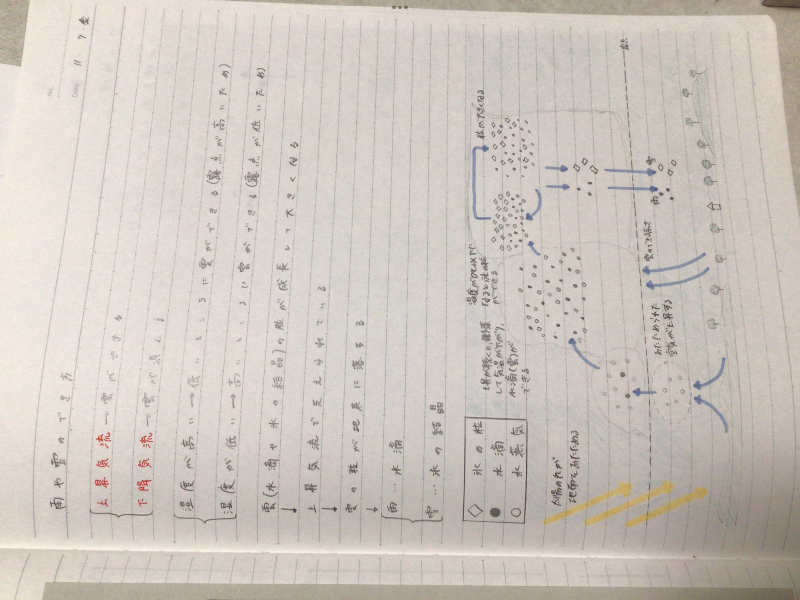 No.
Date 11・7・金
雨や雪のでき方
上昇気流→雲ができる
下降気流→雲が消える
湿度が高い→低いところに雲ができる(露点が高いため)
湿度が低い→高いところに雲ができる(露点が低いため)
雲(水滴や氷の結晶)の粒が成長して大きくなる
↓
上昇気流で支えられている
↓
雲の粒が地表に落ちる
↓
雨…水滴
雪…氷の結晶
◇ 氷の粒
● 水滴
○ 水蒸気
上昇が続くと、膨張
して気温が下がり、
水滴(雲)が
できる
温度が0℃以下に
なると氷の粒
ができる
粒が大きくなる
太陽の光が
地面をあたためる
あたためられた
空気が上昇する
雨
雪
露点